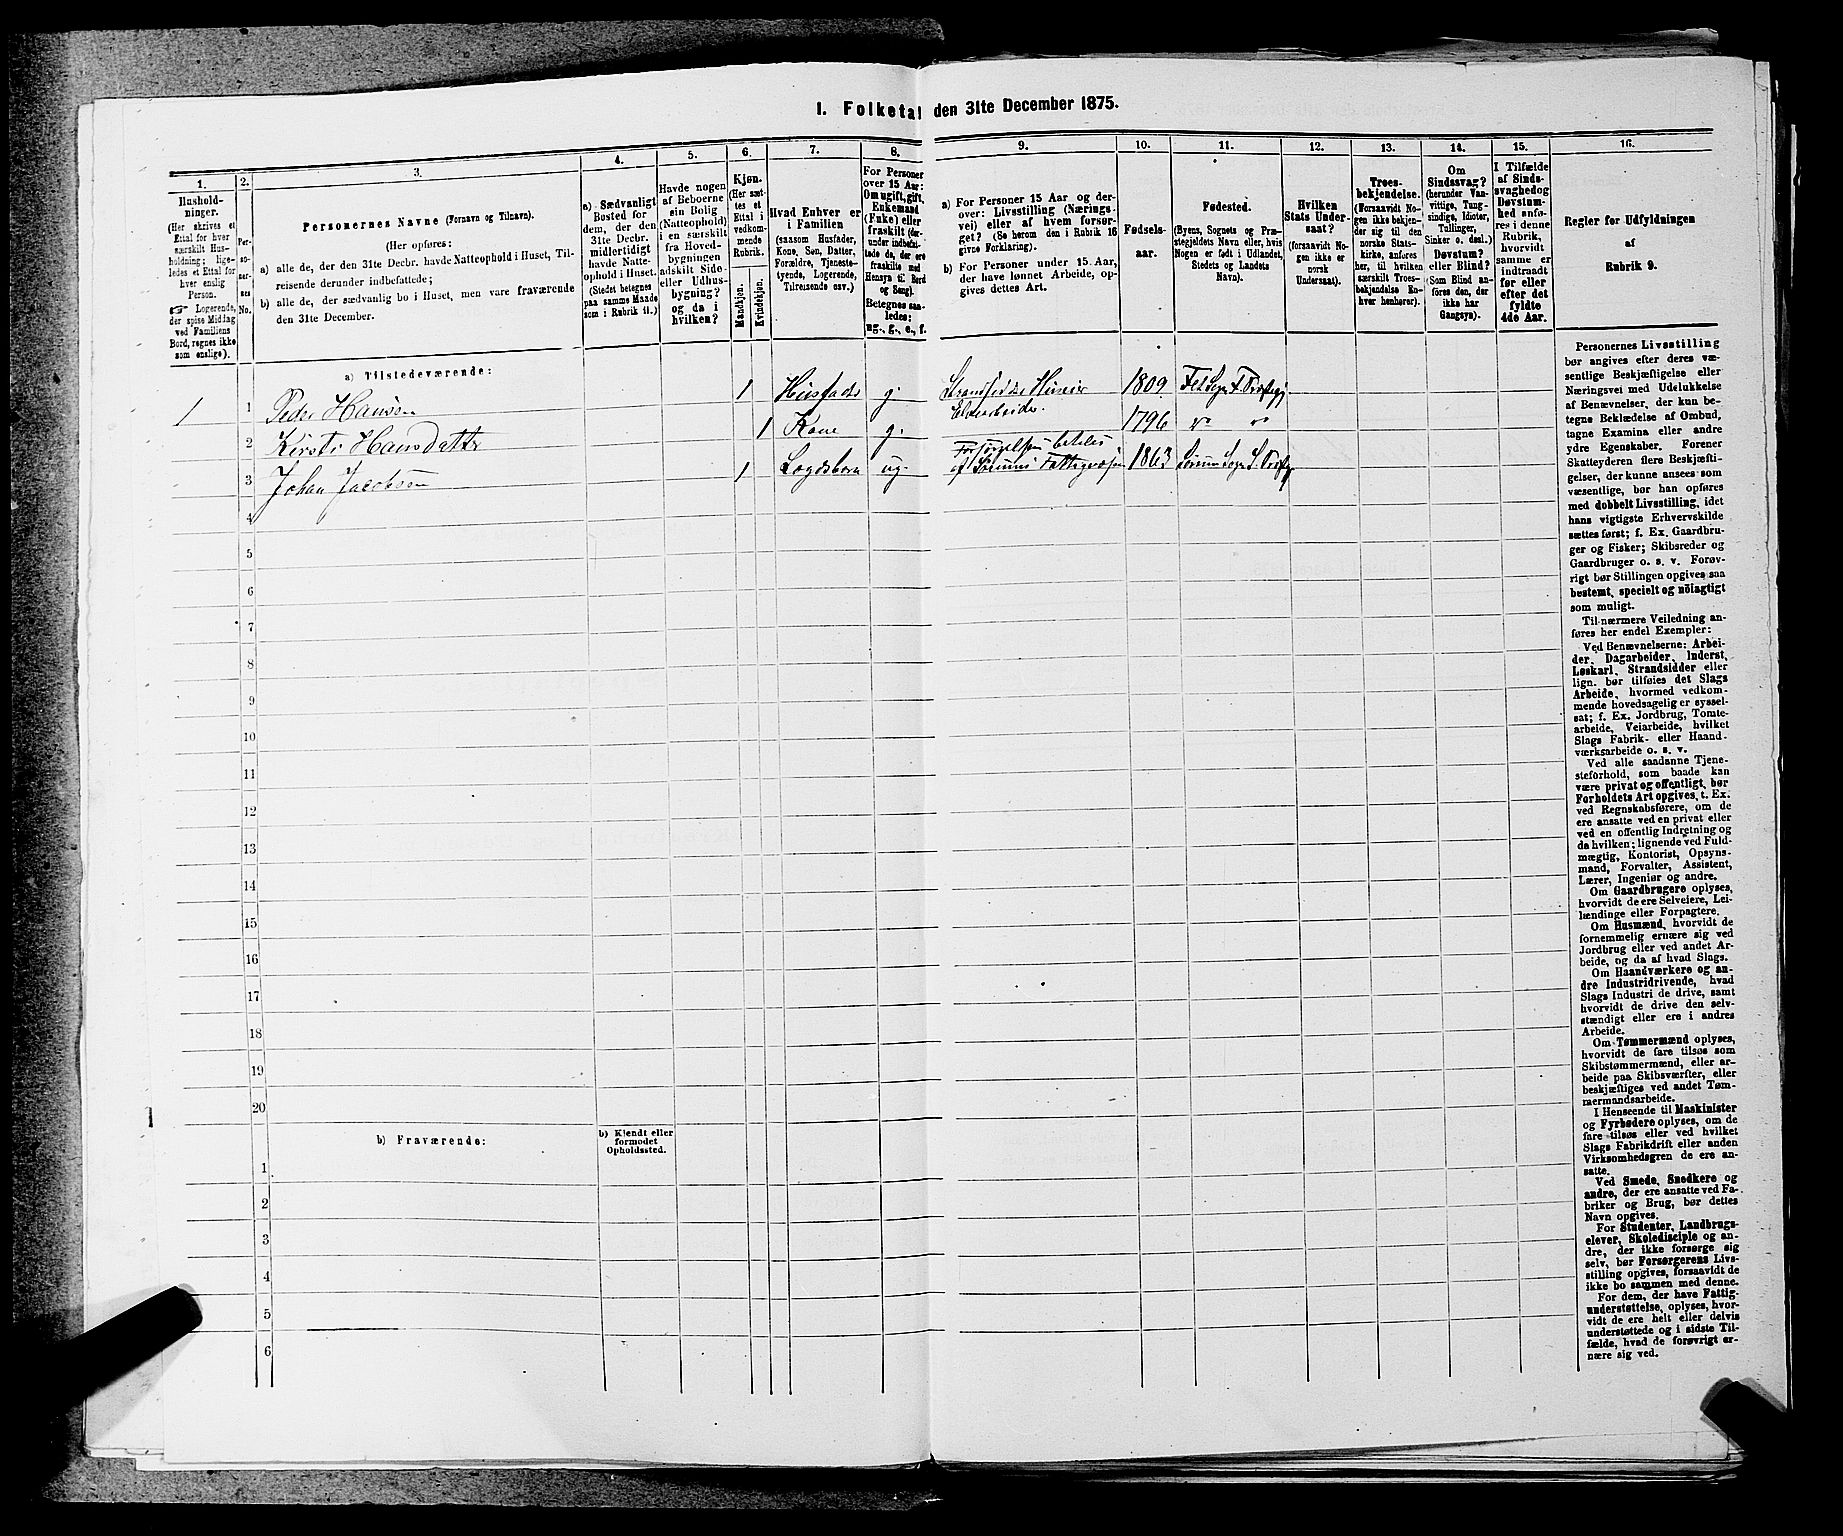 I. Folketal den 31te December 1875.
1.
Hushold-
ninger.
(Her skrives et
Ettal for hver
særskilt Hus-
holdning; lige-
ledes et Ettal for
hver enslig
Person.
☞ Logerende,
der spise Middag
ved Familiens
Bord, regnes ikke
som enslige).
2.
Per-
so-
ner-
nes
No.
3.
Personernes Navne (Fornavn og Tilnavn).
(Her opføres:
a) alle de, der den 31te Decbr. havde Natteophold i Huset, Til-
reisende derunder indbefattede;
b) alle de, der sædvanlig bo i Huset, men vare fraværende
den 31te December.
4.
a) Sædvanligt
Bosted for
dem, der den
31te Decbr.
midlertidigt
havde Natte-
ophold i Huset.
(Stedet betegnes
paa samme Maade
som i Rubrik 11.)
5.
Havde nogen
af Beboerne
sin Bolig
(Natteophold)
i en særskilt
fra Hoved-
bygningen
adskilt Side-
eller Udhus-
bygning?
og da i
hvilken?
6.
Kjøn.
(Her sæt-
tes et
Ettal i
vedkom-
mende
Rubrik.
Mandkjøn.
Kvindekjøn.
7.
Hvad Enhver er
i Familien
(saasom Husfader,
Kone, Søn, Datter,
Forældre, Tjeneste-
tyende, Logerende,
Tilreisende osv.)
8.
For Personer
over 15 Aar:
Om ugift, gift,
Enkemand
(Enke) eller
fraskilt (der-
under indbefat-
tede de, der ere
fraskilte med
Hensyn til Bord
og Seng).
Betegnes saa-
ledes:
ug., g., e., f.
9.
a) For Personer 15 Aar og der-
over: Livsstilling (Nærings-
vei) eller af hvem forsør-
get? (Se herom den i Rubrik 16
givne Forklaring).
b) For Personer under 15 Aar,
der have lønnet Arbeide, op-
gives dettes Art.
10.
Fødsels-
aar.
11.
Fødested.
(Byens, Sognets og Præ-
stegjeldets Navn eller, hvis
Nogen er født i Udlandet,
Stedets og Landets
Navn).
12.
Hvilken
Stats Under-
saat?
(forsaavidt No-
gen ikke er
norsk
Undersaat).
13.
Troes-
bekjendelse.
(Forsaavidt No-
gen ikke bekjen-
der sig til den
norske Stats-
kirke, anføres
her, til hvilken
særskilt Troes-
bekjendelse En-
hver henhører).
14.
Om
Sindssvag?
(herunder Van-
vittige, Tung-
sindige, Idioter,
Tullinger,
Sinker o. desl.)
Døvstum?
eller Blind?
(Som Blind an-
føres den, der
ikke har
Gangsyn).
15.
I Tilfælde
af Sinds-
svaghed og
Døvstum-
hed anfø-
res i denne
Rubrik,
hvorvidt
samme er
indtraadt
før eller
efter det
fyldte
4de Aar.
16.
Regler for Udfyldningen
af
Rubrik 9.
a) Tilstedeværende:
1 1 Peder Hansen 1 Husfader g. 1809 Fet Sogn F. Præstegj.
2 Kirsti Hansdatter 1 Kone g. 1796 " "
Forsørgelsen betales
3 Johan Jacobsen 1 Lægdsbarn ug. af Sørums Fattigvæsen 1863 Sørum Sogn S. Præstgj
4
5
6
7
8
9
10
11
12
13
14
15
16
17
18
19
20
b) Fraværende:
b) Kjendt eller
formodet
Opholdssted.
1
2
3
4
5
6
Personernes Livsstilling
bør angives efter deres væ-
sentlige Beskjæftigelse eller
Næringsvei med Udelukkelse
af Benævnelser, der kun be-
tegne Beklædelse af Ombud,
tagne Examina eller andre
ydre Egenskaber. Forener
Skatteyderen flere Beskjæfti-
gelser, der kunne ansees som
væsentlige, bør han opføres
med dobbelt Livsstilling, idet
hans vigtigste Erhvervskilde
sættes først; f. Ex. Gaardbru-
ger og Fisker; Skibsreder og
Gaardbruger o. s. v. Forøv-
rigt bør Stillingen opgives saa
bestemt, specielt og nöiagtigt
som muligt.
Til nærmere Veiledning an-
føres her endel Exempler:
Ved Benævnelserne: Arbei-
der, Dagarbeider, Inderst,
Løskarl, Strandsidder eller
lign. bør tilføies det Slags
Arbeide, hvormed vedkom-
mende hovedsagelig er syssel-
sat; f. Ex. Jordbrug, Tomte-
arbeide, Veiarbeide, hvilket
Slags Fabrik- eller Haand-
værksarbeide o. s. v.
Ved alle saadanne Tjene-
steforhold, som baade kan
være privat og offentligt, bør
Forholdets Art opgives, t. Ex.
ved Regnskabsførere, om de
ere ansatte ved en privat eller
ved en offentlig Indretning og
da hvilken; lignende ved Fuld-
mægtig, Kontorist, Opsyns-
mand, Forvalter, Assistent,
Lærer, Ingeniør og andre.
Om Gaardbrugere oplyses,
hvorvidt de ere Selveiere, Lei-
lændinge eller Forpagtere.
Om Husmænd, hvorvidt de
fornemmelig ernære sig ved
Jordbrug eller ved andet Ar-
beide, og da af hvad Slags.
Om Haandværkere og an-
dre Industridrivende, hvad
Slags Industri de drive, samt
hvorvidt de drive den selv-
stændigt eller ere i andres
Arbeide.
Om Tømmermænd oplyses,
hvorvidt de fare tilsøs som
Skibstømmermænd, eller ar-
beide paa Skibsværfter, eller
beskjæftiges ved andet Tøm-
mermandsarbeide.
I Henseende til Maskinister
og Fyrbødere oplyses, om de
fare tilsøs eller ved hvilket
Slags Fabrikdrift eller anden
Virksomhedsgren de ere an-
satte.
Ved Smede, Snedkere og
andre, der ere ansatte ved Fa-
briker og Brug, bør dettes
Navn opgives.
For Studenter, Landbrugs-
elever, Skoledisciple og an-
dre, der ikke forsørge sig
selv, bør Forsørgerens Livs-
stilling opgives, forsaavidt de
ikke bo sammen med denne.
For dem, der have Fattig-
understøttelse, oplyses, hvor-
vidt de ere helt eller delvis
understøttede og i sidste Til-
fælde, hvad de forøvrigt er-
nære sig ved.